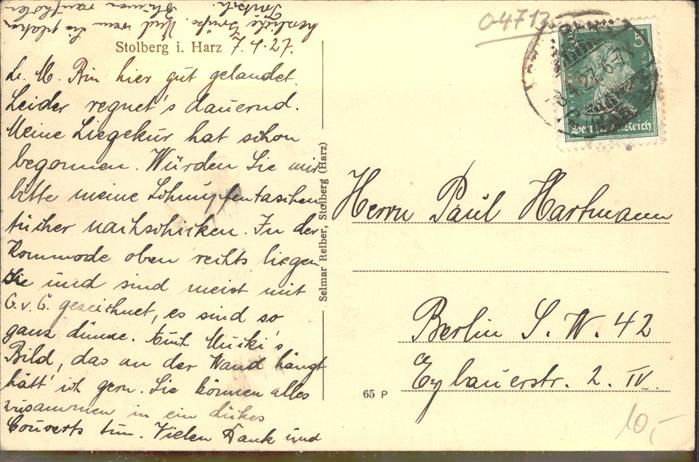 Stolberg i. Harz 7.4.27.
L. M. Bin hier gut gelandet.
Leider regnet's dauernd.
Meine Liegekur hat schon
begonnen. Würden Sie mir
bitte meine Schnupfentaschen
tücher nachschicken. In der
Kommode oben rechts liegen
sie und sind meist mit
G. v. G. gezeichnet, es sind so
ganz dünne. Auch
Bild, das an der Wand hängt
hätt' ich gern. Sie können alles
zusammen in ein dickes
Couverts tun. Vielen Dank und
herzliche Grüße
Selmar Reiber, Stolberg (Harz)
04713
5
Deutsches Reich
Herrn Paul Hartmann
Berlin S. W. 42
Eylauerstr. 2. IV.
65 P
10,-